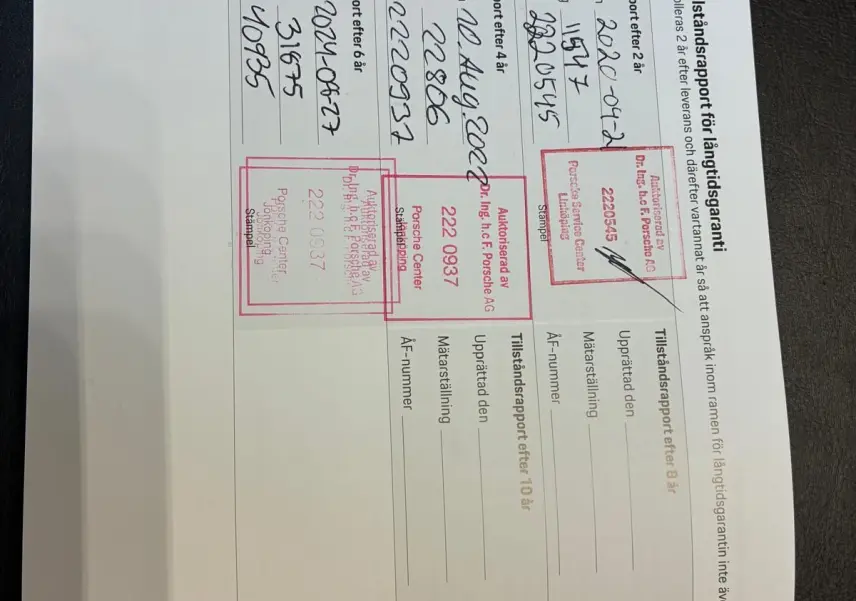 lståndsrapport för långtidsgaranti
olleras 2 år efter leverans och därefter vartannat år så att anspråk inom ramen för långtidsgarantin inte äv
port efter 2 år
2020-04-2
11547
2220545
Auktoriserad av
Dr. Ing. h.c F. Porsche AG
2220545
Porsche Service Center
Linköping
Stämpel
port efter 4 år
10. Aug. 2022
22806
2220937
Auktoriserad av
Dr. Ing. h.c F. Porsche AG
222 0937
Porsche Center
Stämpel
ort efter 6 år
31675
40935
Auktoriserad av
Dr. Ing. h.c F. Porsche AG
222 0937
Porsche Center
Jönköping
Stämpel
Tillståndsrapport efter 8 år
Upprättad den
Mätarställning
ÅF-nummer
Tillståndsrapport efter 10 år
Upprättad den
Mätarställning
ÅF-nummer